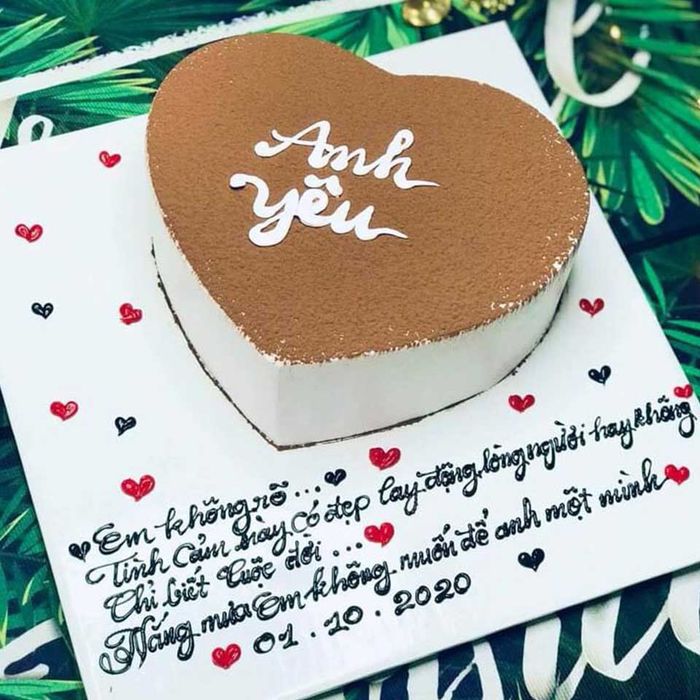 Anh
Yêu
Em không rõ...
Tình cảm này có đẹp lay động lòng người hay không
Chỉ biết cuộc đời...
Nắng mưa em không muốn để anh một mình
01.10.2020